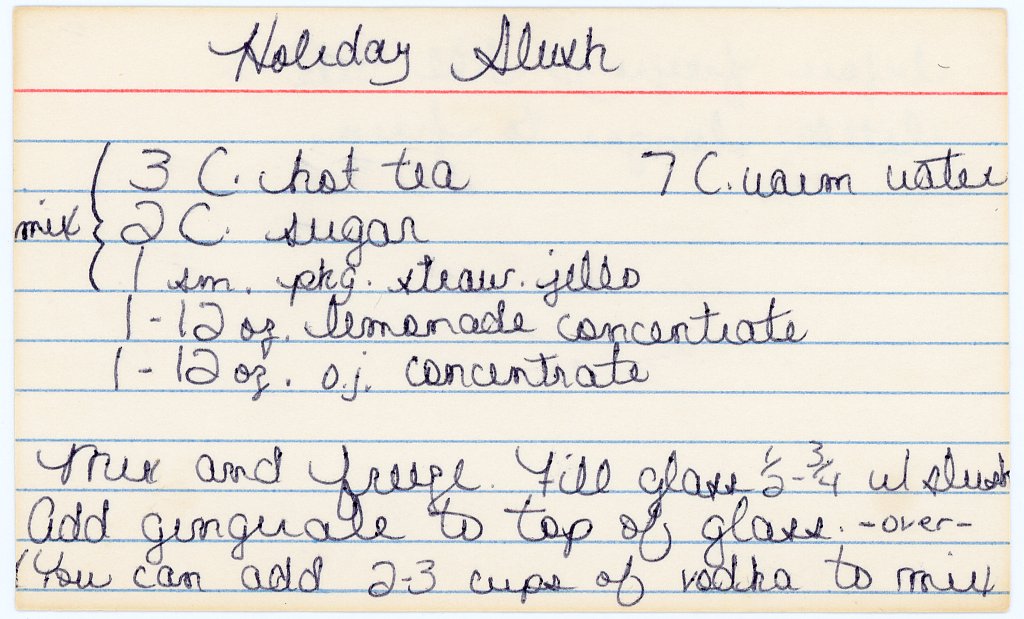 Holiday Slush
3 C. hot tea 7 C. warm water
mix { 2 C. sugar
1 sm. pkg. straw. jello
1-12 oz. lemonade concentrate
1-12 oz. o.j. concentrate
Mix and freeze. Fill glass 1/2-3/4 w/ slush
Add gingerale to top of glass. -over-
(You can add 2-3 cups of vodka to mix